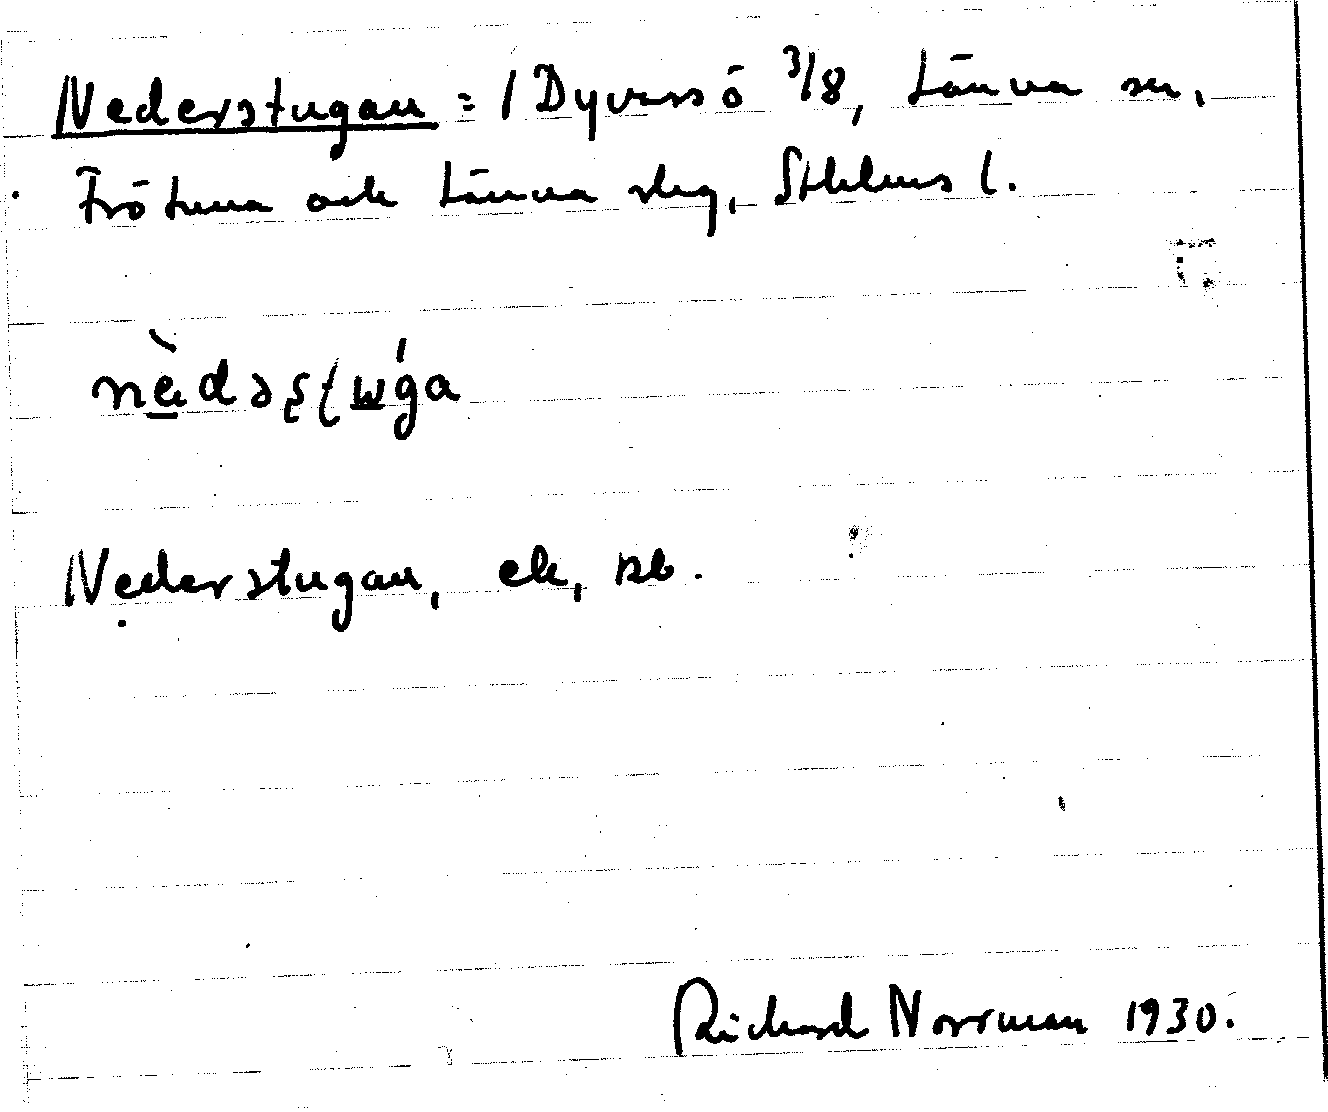 Nederstugan = 1 Dyversö 3/8, Länna sn,
Frötuna och Länna slag, Sthlms l.
nèdəʂʈɯǵa
Nederstugan, ek, nb.
Richard Norrman 1930.